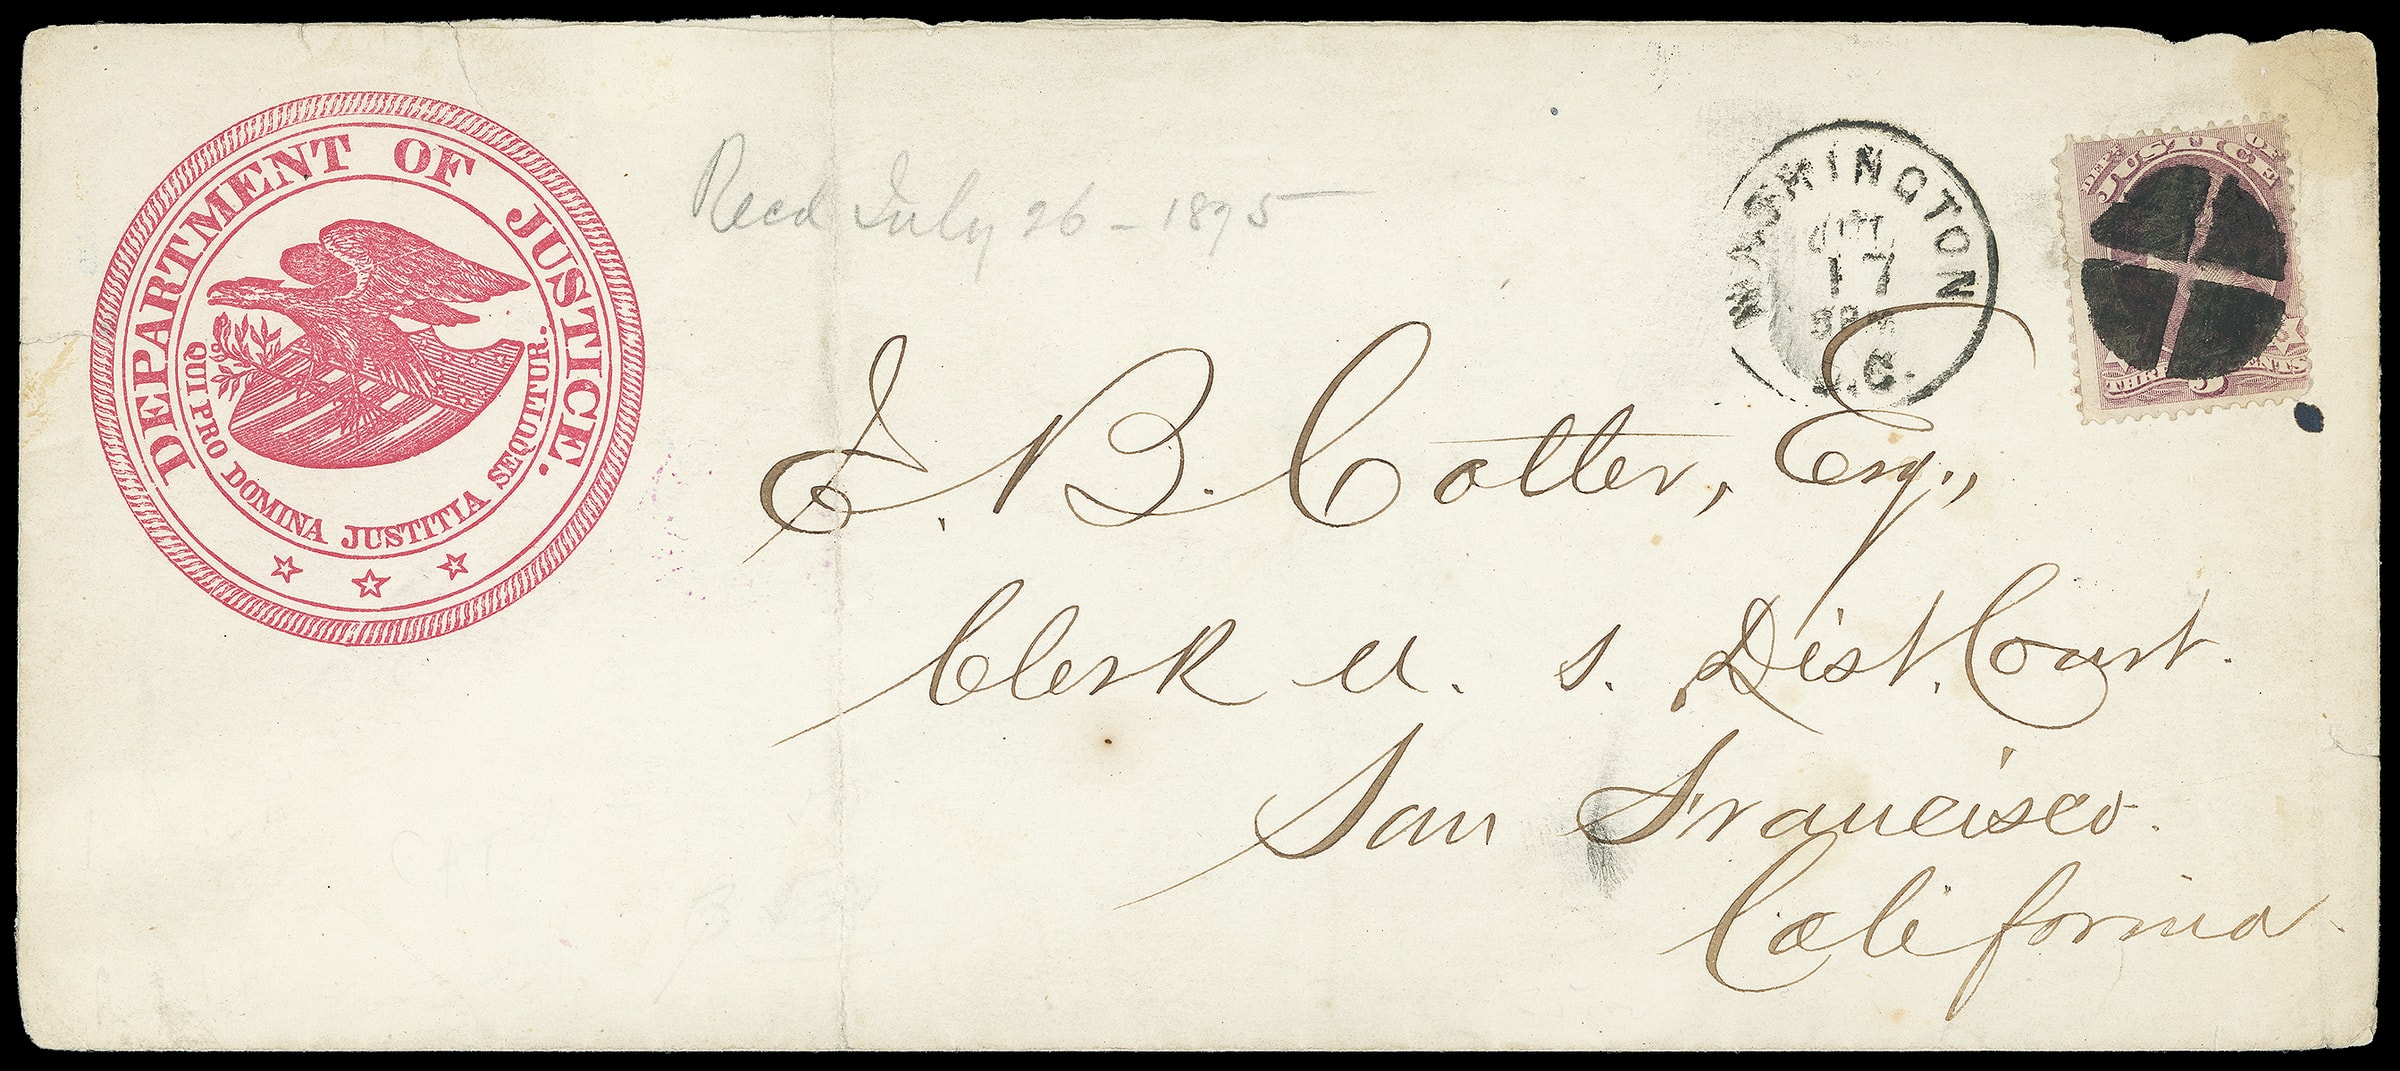 DEPARTMENT OF JUSTICE.
QUI PRO DOMINA JUSTITIA SEQUITUR.
Recd July 26 - 1875
WASHINGTON
JUL
17
D.C.
DEPT. OF
JUSTICE
THREE CENTS
3
J. B. Cotter, Esq.,
Clerk U. S. Dist. Court.
San Francisco.
California.